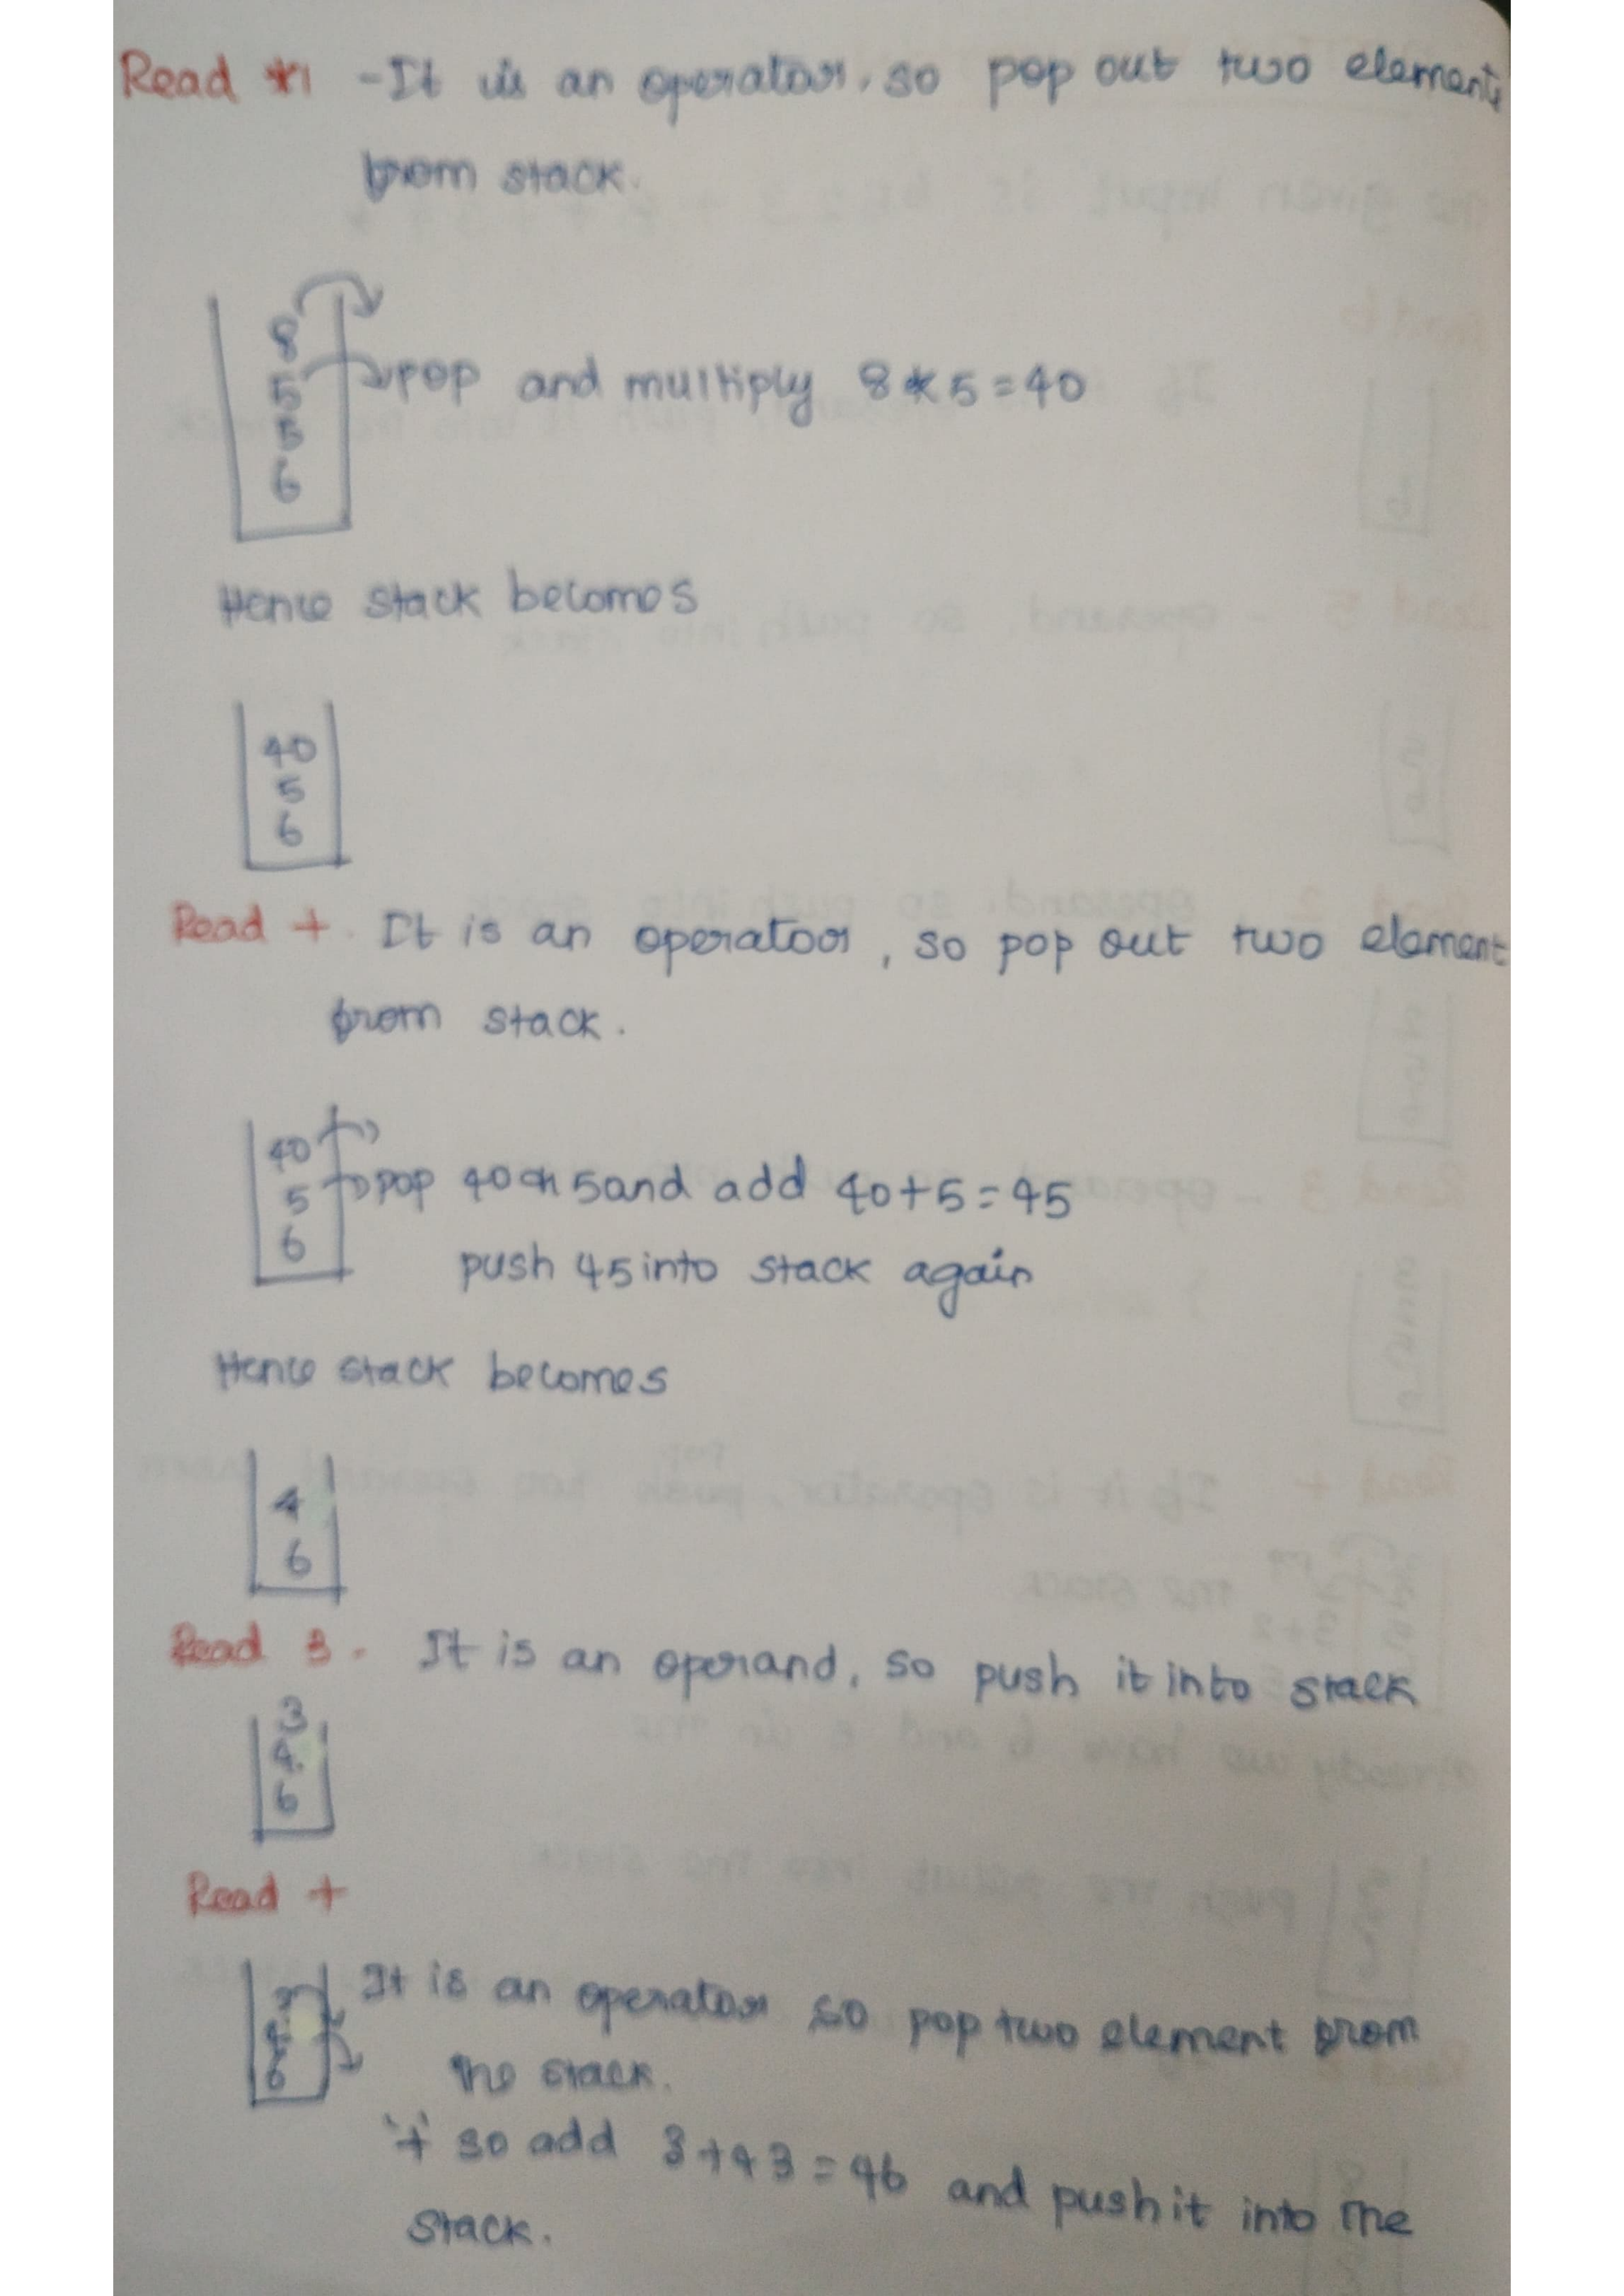 Read * - It is an operator, so pop out two element
from stack.
8
5
5
6
pop and multiply 8 * 5 = 40
Hence stack becomes
40
5
6
Read + It is an operator, so pop out two element
from stack.
40
5
6
pop 40 5 and add 40+5=45
push 45 into stack again
Hence stack becomes
4
6
Read 3. It is an operand, so push it into stack
3
4
6
Read +
6
It is an operator so pop two element from
the stack.
'+' so add 3+43=46 and push it into the
stack.